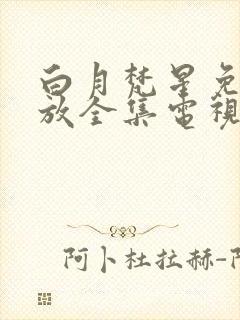 白月梵星免
放全集電視
阿卜杜拉赫-阿